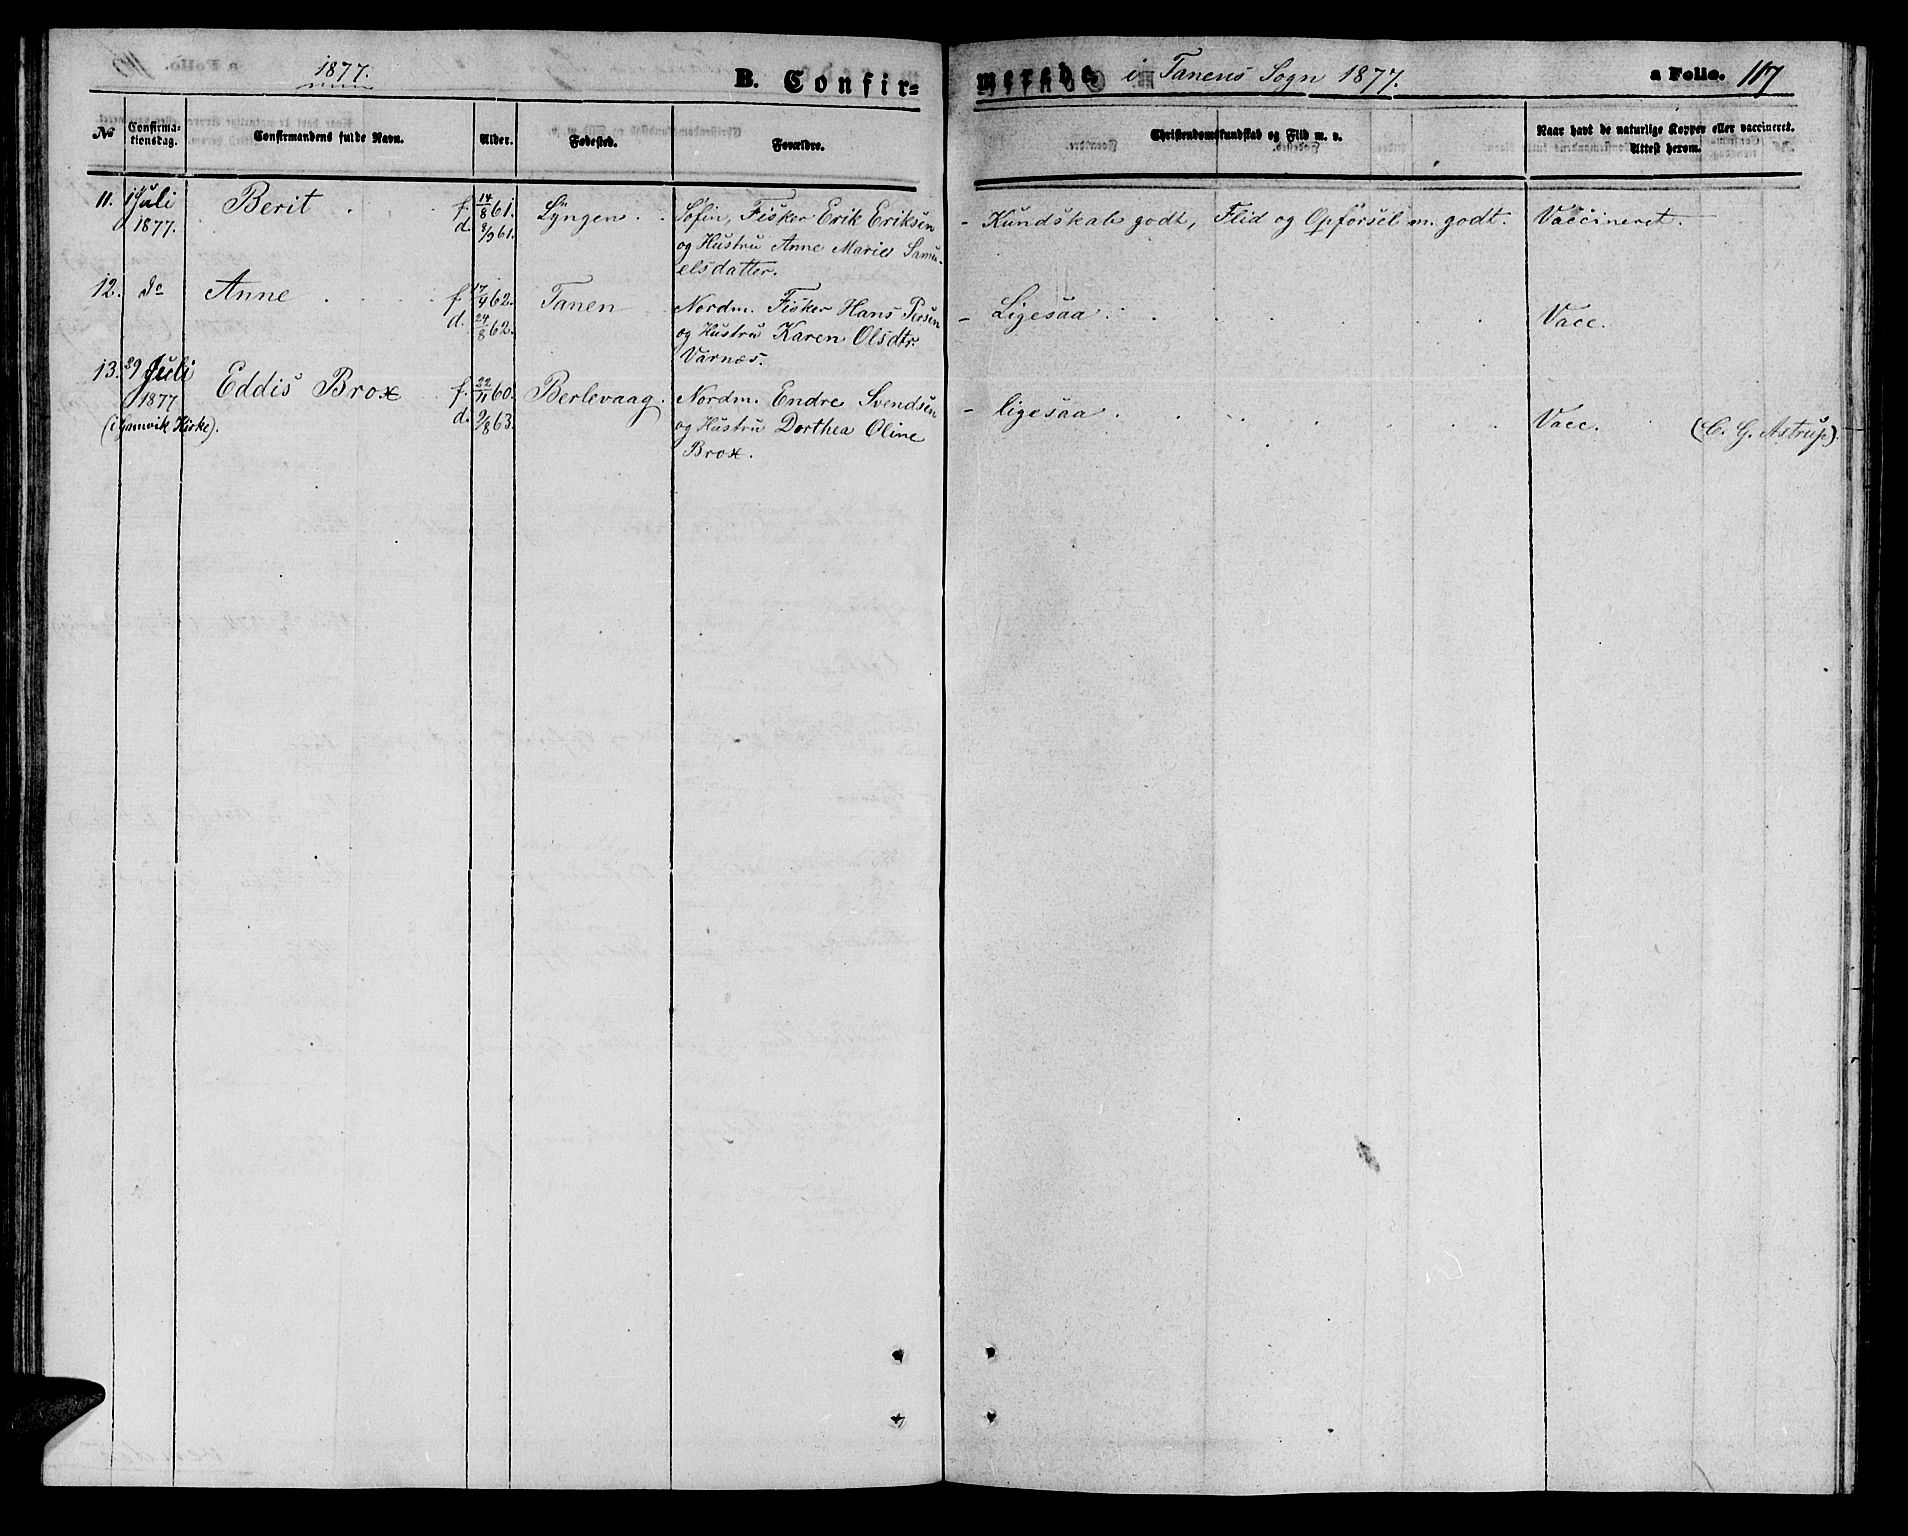 1877. B. Confir= merede i Tanens Sogn 1877. a Folio. 117
No Confirma-tionsdag. Confirmandens fulde Navn. Alder. Fødested. Forældre. Christendomskundskab og Flid m. v. Naar havt de naturlige Kopper eller vaccineret. Attest herom.
11. 1 Juli Berit f. 14/8 61. Lyngen. Søfin, Fisker Erik Eriksen - Kundskab godt, Flid og Opførsel m. godt. Vaccineret.
1877. d. 8/9 61. og Hustru Anne Marie Samu-
elsdatter.
12. do Anne f. 17/4 62. Tanen Nordm. Fisker Hans Persen - Ligesaa. Vacc.
d. 24/8 62. og Hustru Karen Olsdtr.
Varnæs.
13. 29 Juli Eddis Brox f. 22/11 60. Berlevaag. Nordm. Endre Svendsen - ligesaa. Vacc. (C. G. Astrup).
1877 d. 9/8 63. og Hustru Dorthea Oline
(i Gamvik Kirke). Brox.